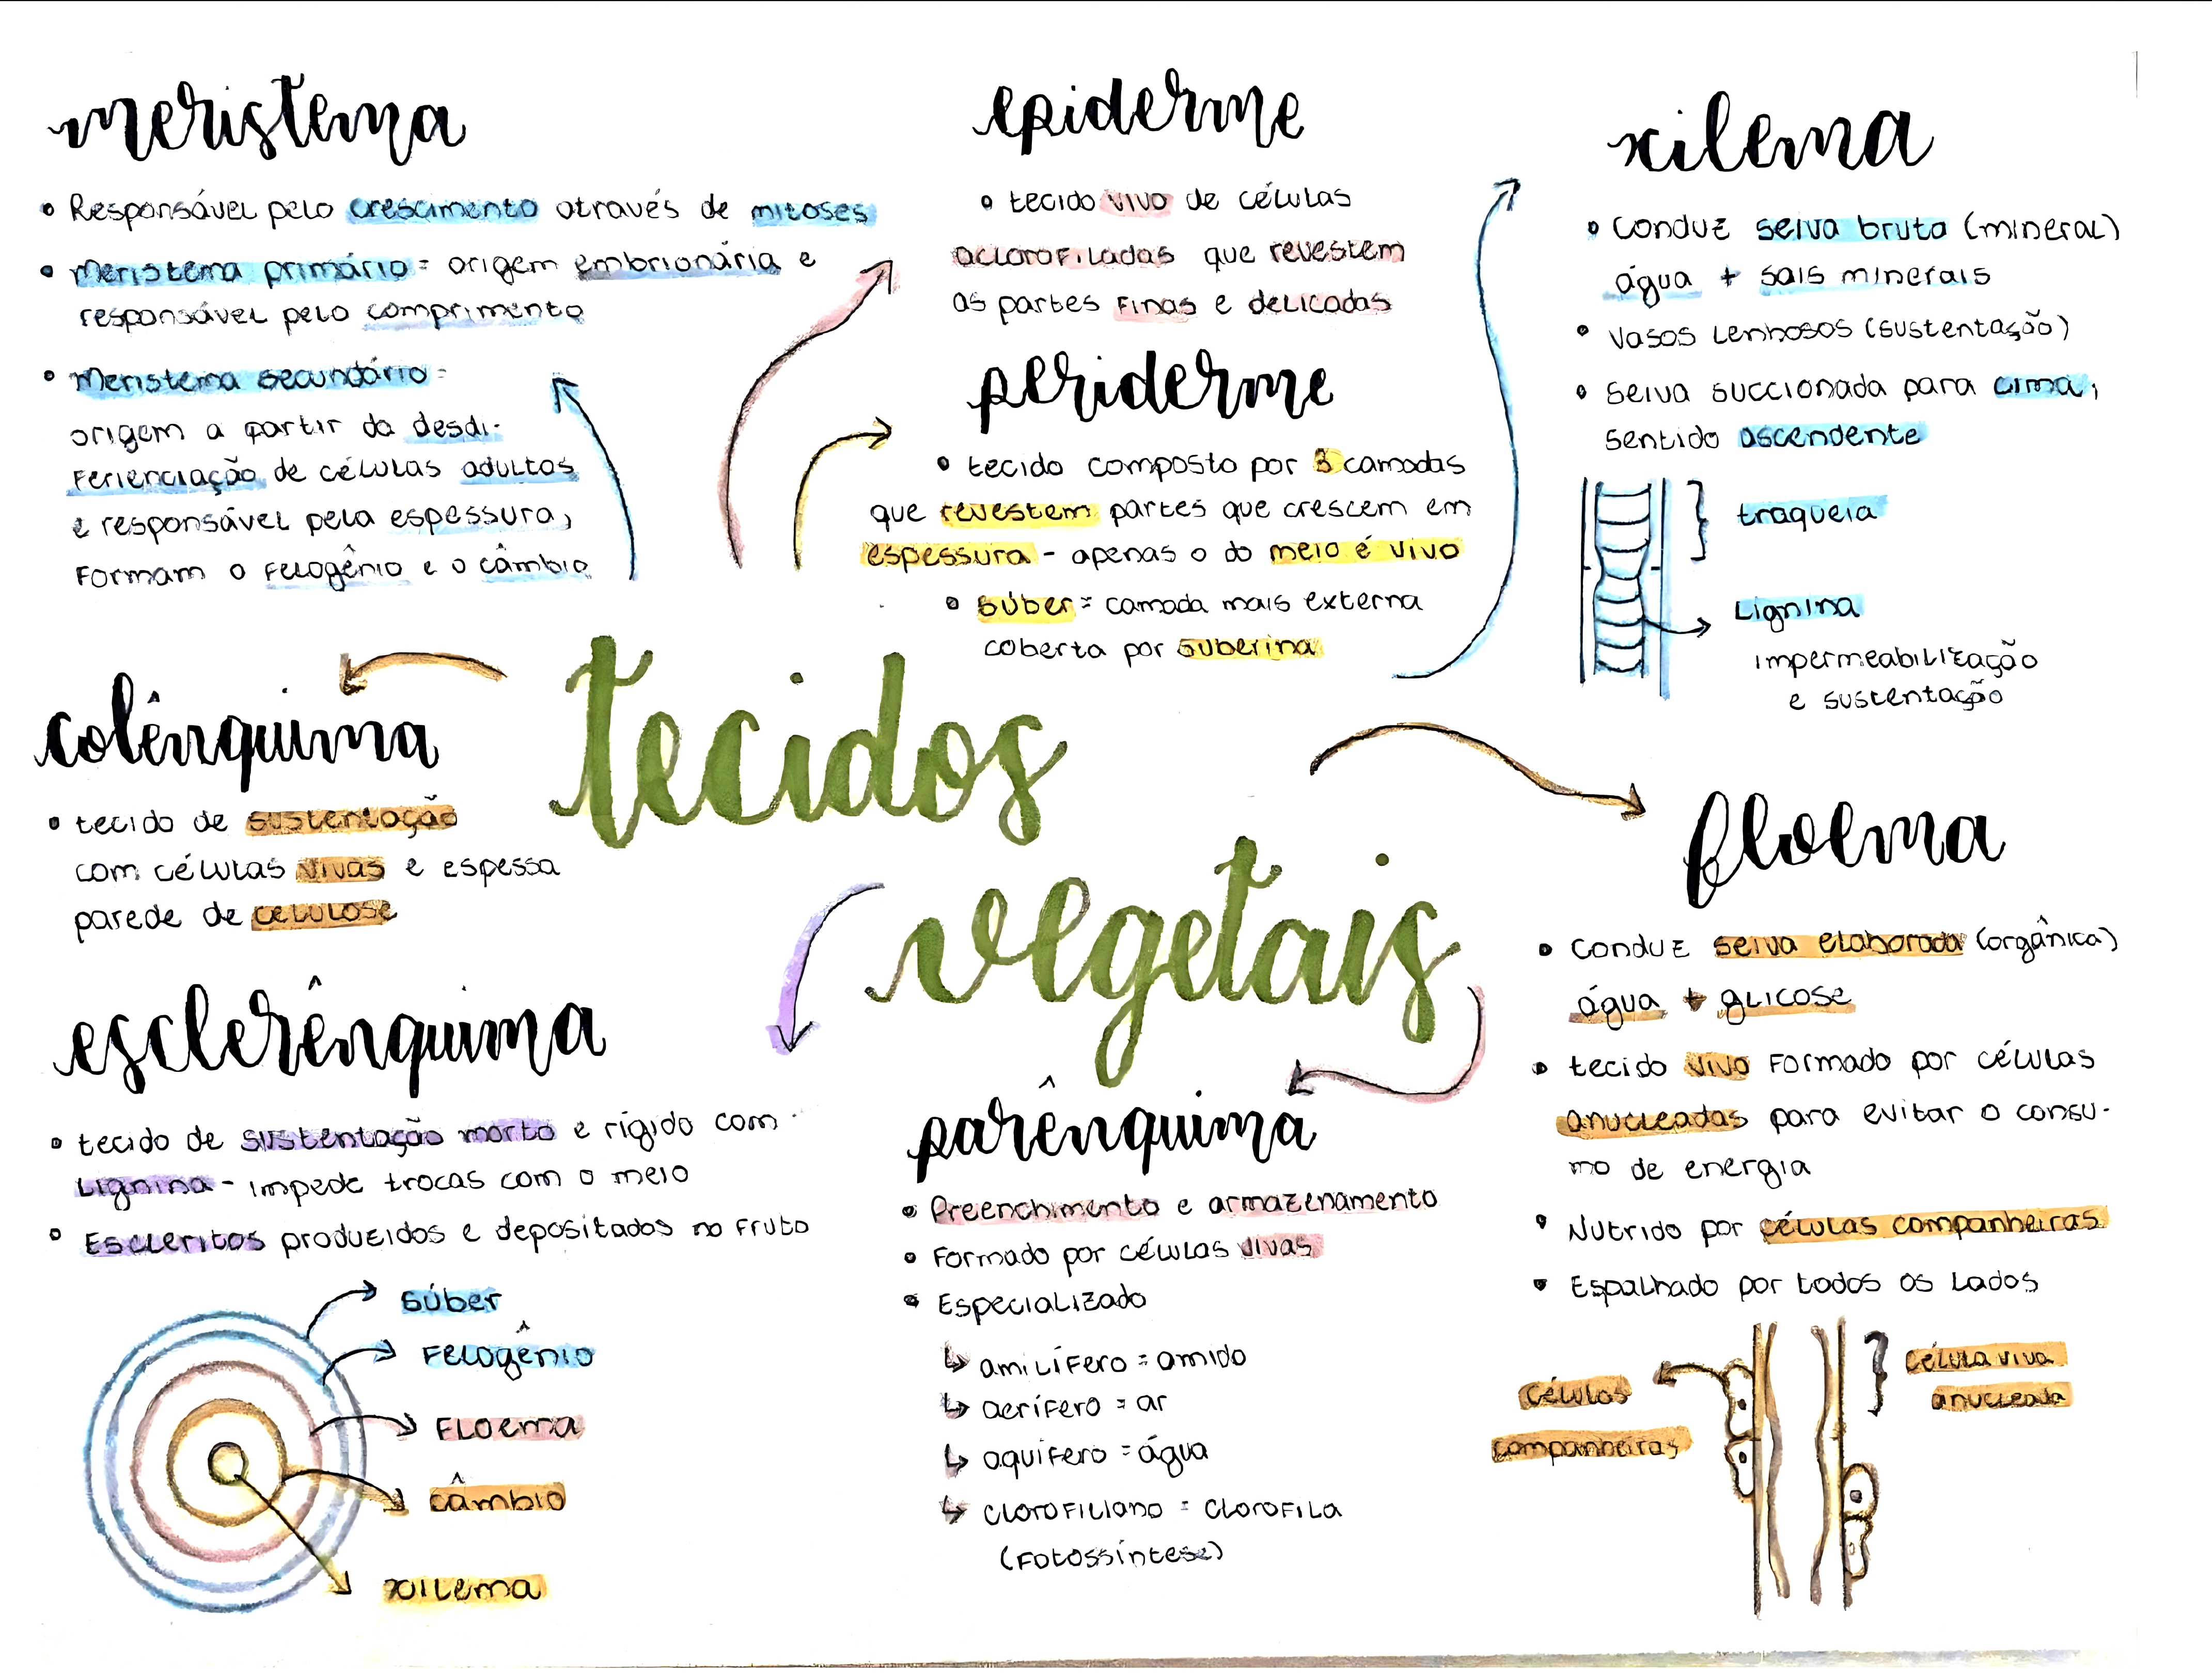 meristema
• Responsável pelo crescimento através de mitoses
• Meristema primário = origem embrionária e
responsável pelo comprimento
• Meristema secundário =
origem a partir da desdi-
ferienciação de células adultas
e responsável pela espessura,
Formam o felogênio e o câmbio
epiderme
• tecido vivo de células
aclorofiladas que revestem
as partes finas e delicadas
periderme
• tecido composto por 3 camadas
que revestem partes que crescem em
espessura - apenas o do meio é vivo
• súber = camada mais externa
coberta por suberina
xilema
• Conduz seiva bruta (mineral)
água + sais minerais
• Vasos lenhosos (sustentação)
• Seiva succionada para cima,
sentido ascendente
traqueia
Lignina
impermeabilização
e sustentação
tecidos
vegetais
colênquima
• tecido de sustentação
com células vivas e espessa
parede de celulose
esclerênquima
• tecido de sustentação morto e rígido com
Lignina - impede trocas com o meio
• Escleritos produzidos e depositados no fruto
súber
Felogênio
Floema
câmbio
xilema
parênquima
• Preenchimento e armazenamento
• Formado por células vivas
• Especializado
↳ amilífero = amido
↳ aerífero = ar
↳ aquífero = água
↳ clorofiliano = clorofila
(Fotossíntese)
floema
• Conduz seiva elaborada (orgânica)
água + glicose
• tecido vivo formado por células
anucleadas para evitar o consu-
mo de energia
• Nutrido por células companheiras
• Espalhado por todos os lados
células
companheiras
célula viva
anucleada